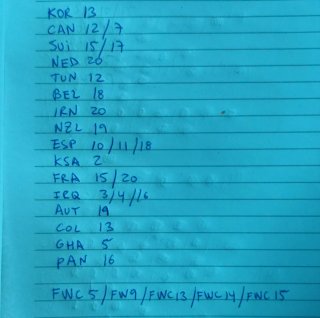 KOR 13
CAN 12/7
SUI 15/17
NED 20
TUN 12
BEL 18
IRN 20
NZL 19
ESP 10/11/18
KSA 2
FRA 15/20
IRQ 3/4/16
AUT 19
COL 13
GHA 5
PAN 16
FWC 5/FW9/FWC13/FWC14/FWC15